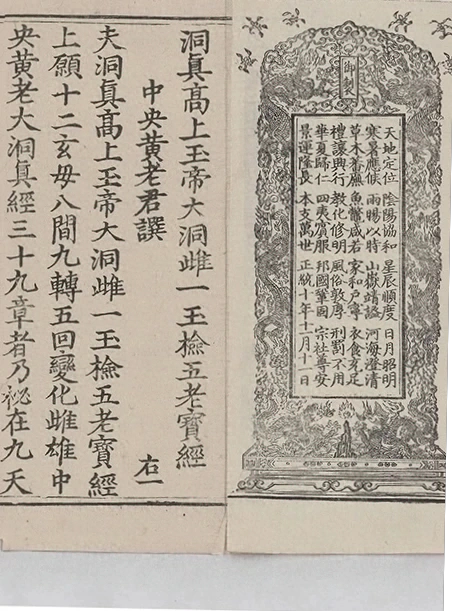 御製
天地定位 陰陽協和 星辰順度 日月昭明
寒暑應候 雨暘以時 山嶽靖謐 河海澄清
草木蕃廡 魚鱉咸若 家和戶寧 衣食充足
禮讓興行 教化修明 風俗敦厚 刑罰不用
華夏歸仁 四夷賓服 邦國鞏固 宗社尊安
景運隆長 本支萬世 正統十年十一月十一日
洞真高上玉帝大洞雌一玉檢五老寶經
中央黃老君譔 右一
夫洞真高上玉帝大洞雌一玉檢五老寶經
上願十二玄母八間九轉五回變化雌雄中
央黃老大洞真經三十九章者乃祕在九天